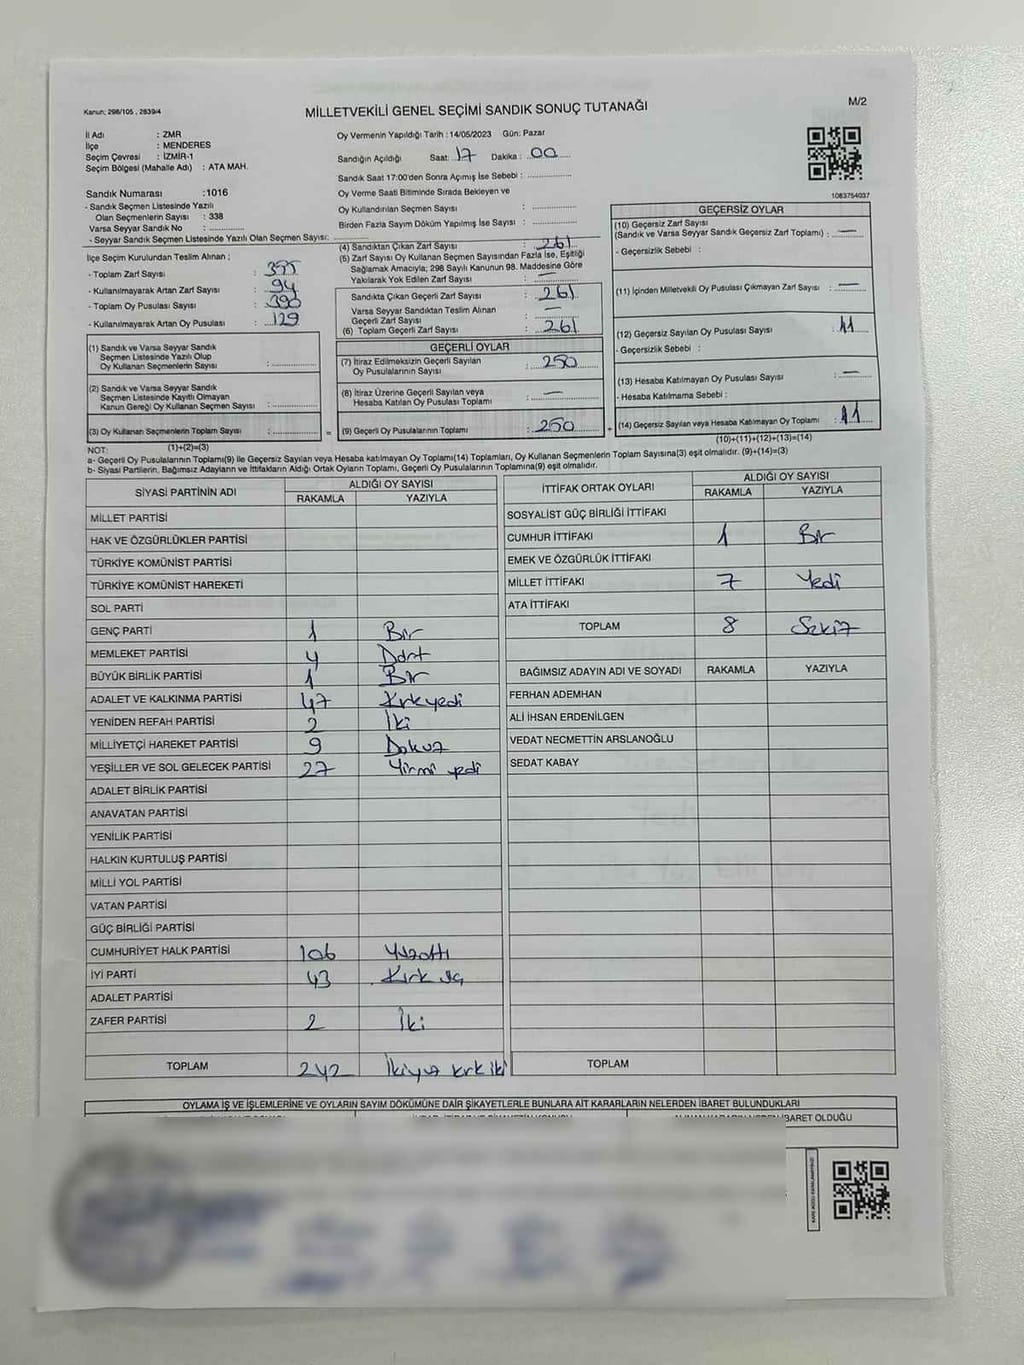 Kanun: 298/105 , 2839/4
M/2
MİLLETVEKİLİ GENEL SEÇİMİ SANDIK SONUÇ TUTANAĞI
İl Adı : ZMR
İlçe : MENDERES
Seçim Çevresi : İZMİR-1
Seçim Bölgesi (Mahalle Adı) : ATA MAH.
Sandık Numarası :1016
- Sandık Seçmen Listesinde Yazılı
Olan Seçmenlerin Sayısı : 338
Varsa Seyyar Sandık No :
- Seyyar Sandık Seçmen Listesinde Yazılı Olan Seçmen Sayısı:
İlçe Seçim Kurulundan Teslim Alınan ;
- Toplam Zarf Sayısı : 355
- Kullanılmayarak Artan Zarf Sayısı : 94
- Toplam Oy Pusulası Sayısı : 390
- Kullanılmayarak Artan Oy Pusulası : 129
(1) Sandık ve Varsa Seyyar Sandık
Seçmen Listesinde Yazılı Olup
Oy Kullanan Seçmenlerin Sayısı :
(2) Sandık ve Varsa Seyyar Sandık
Seçmen Listesinde Kayıtlı Olmayan
Kanun Gereği Oy Kullanan Seçmen Sayısı :
(3) Oy Kullanan Seçmenlerin Toplam Sayısı :
(1)+(2)=(3)
Oy Vermenin Yapıldığı Tarih : 14/05/2023 Gün: Pazar
Sandığın Açıldığı Saat: 17 Dakika : 00
Sandık Saat 17:00'den Sonra Açımış İse Sebebi :
Oy Verme Saati Bitiminde Sırada Bekleyen ve
Oy Kullandırılan Seçmen Sayısı :
Birden Fazla Sayım Döküm Yapılmış İse Sayısı :
(4) Sandıktan Çıkan Zarf Sayısı : 261
(5) Zarf Sayısı Oy Kullanan Seçmen Sayısından Fazla İse, Eşitliği
Sağlamak Amacıyla; 298 Sayılı Kanunun 98. Maddesine Göre
Yakılarak Yok Edilen Zarf Sayısı : —
Sandıkta Çıkan Geçerli Zarf Sayısı : 261
Varsa Seyyar Sandıktan Teslim Alınan
Geçerli Zarf Sayısı : —
(6) Toplam Geçerli Zarf Sayısı : 261
GEÇERLİ OYLAR
(7) İtiraz Edilmeksizin Geçerli Sayılan
Oy Pusulalarının Sayısı : 250
(8) İtiraz Üzerine Geçerli Sayılan veya
Hesaba Katılan Oy Pusulası Toplamı : —
= (9) Geçerli Oy Pusulalarının Toplamı : 250 +
1083754037
GEÇERSİZ OYLAR
(10) Geçersiz Zarf Sayısı
(Sandık ve Varsa Seyyar Sandık Geçersiz Zarf Toplamı) : —
- Geçersizlik Sebebi :
(11) İçinden Milletvekili Oy Pusulası Çıkmayan Zarf Sayısı : —
(12) Geçersiz Sayılan Oy Pusulası Sayısı : 11
- Geçersizlik Sebebi :
(13) Hesaba Katılmayan Oy Pusulası Sayısı : —
- Hesaba Katılmama Sebebi :
(14) Geçersiz Sayılan veya Hesaba Katılmayan Oy Toplamı : 11
(10)+(11)+(12)+(13)=(14)
NOT:
a- Geçerli Oy Pusulalarının Toplamı(9) ile Geçersiz Sayılan veya Hesaba katılmayan Oy Toplamı(14) Toplamları, Oy Kullanan Seçmenlerin Toplam Sayısına(3) eşit olmalıdır. (9)+(14)=(3)
b- Siyasi Partilerin, Bağımsız Adayların ve İttifakların Aldığı Ortak Oyların Toplamı, Geçerli Oy Pusulalarının Toplamına(9) eşit olmalıdır.
SİYASİ PARTİNİN ADI ALDIĞI OY SAYISI
RAKAMLA YAZIYLA
MİLLET PARTİSİ
HAK VE ÖZGÜRLÜKLER PARTİSİ
TÜRKİYE KOMÜNİST PARTİSİ
TÜRKİYE KOMÜNİST HAREKETİ
SOL PARTİ
GENÇ PARTİ 1 Bir
MEMLEKET PARTİSİ 4 Dört
BÜYÜK BİRLİK PARTİSİ 1 Bir
ADALET VE KALKINMA PARTİSİ 47 Kırkyedi
YENİDEN REFAH PARTİSİ 2 İki
MİLLİYETÇİ HAREKET PARTİSİ 9 Dokuz
YEŞİLLER VE SOL GELECEK PARTİSİ 27 Yirmi yedi
ADALET BİRLİK PARTİSİ
ANAVATAN PARTİSİ
YENİLİK PARTİSİ
HALKIN KURTULUŞ PARTİSİ
MİLLİ YOL PARTİSİ
VATAN PARTİSİ
GÜÇ BİRLİĞİ PARTİSİ
CUMHURİYET HALK PARTİSİ 106 Yüzaltı
İYİ PARTİ 43 Kırk üç
ADALET PARTİSİ
ZAFER PARTİSİ 2 İki
TOPLAM 242 İkiyüz kırk iki
İTTİFAK ORTAK OYLARI ALDIĞI OY SAYISI
RAKAMLA YAZIYLA
SOSYALİST GÜÇ BİRLİĞİ İTTİFAKI
CUMHUR İTTİFAKI 1 Bir
EMEK VE ÖZGÜRLÜK İTTİFAKI
MİLLET İTTİFAKI 7 Yedi
ATA İTTİFAKI
TOPLAM 8 Sekiz
BAĞIMSIZ ADAYIN ADI VE SOYADI RAKAMLA YAZIYLA
FERHAN ADEMHAN
ALİ İHSAN ERDENİLGEN
VEDAT NECMETTİN ARSLANOĞLU
SEDAT KABAY
TOPLAM
OYLAMA İŞ VE İŞLEMLERİNE VE OYLARIN SAYIM DÖKÜMÜNE DAİR ŞİKAYETLERLE BUNLARA AİT KARARLARIN NELERDEN İBARET BULUNDUKLARI
İBARET OLDUĞU